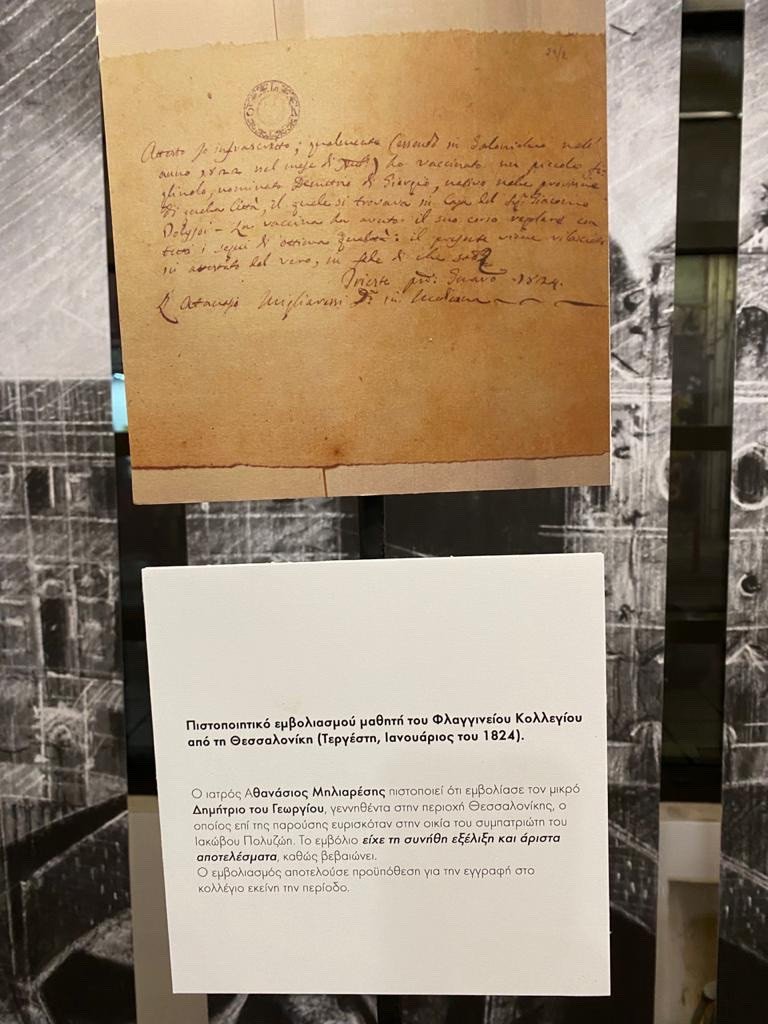 24/2
Attesto Io infrascritto, qualmente essendo in Salonichio nell'
anno 1822 nel mese di ho vaccinato un piccolo fi-
gliuolo, nominato Demetrio di Giorgio, nativo nelle provincie
di quella Città, il quale si trovava in Casa del Sigr Giacomo
La vaccina ha avuto il suo corso regolare con
tutti i segni di ottima qualità: il presente viene rilasciato
in attestato del vero, in fede di che
Trieste 1824.
Atanasio Migliaressi in Medicina
Πιστοποιητικό εμβολιασμού μαθητή του Φλαγγινείου Κολλεγίου
από τη Θεσσαλονίκη (Τεργέστη, Ιανουάριος του 1824).
Ο ιατρός Αθανάσιος Μηλιαρέσης πιστοποιεί ότι εμβολίασε τον μικρό
Δημήτριο του Γεωργίου, γεννηθέντα στην περιοχή Θεσσαλονίκης, ο
οποίος επί της παρούσης ευρισκόταν στην οικία του συμπατριώτη του
Ιακώβου Πολυζώη. Το εμβόλιο είχε τη συνήθη εξέλιξη και άριστα
αποτελέσματα, καθώς βεβαιώνει.
Ο εμβολιασμός αποτελούσε προϋπόθεση για την εγγραφή στο
κολλέγιο εκείνη την περίοδο.